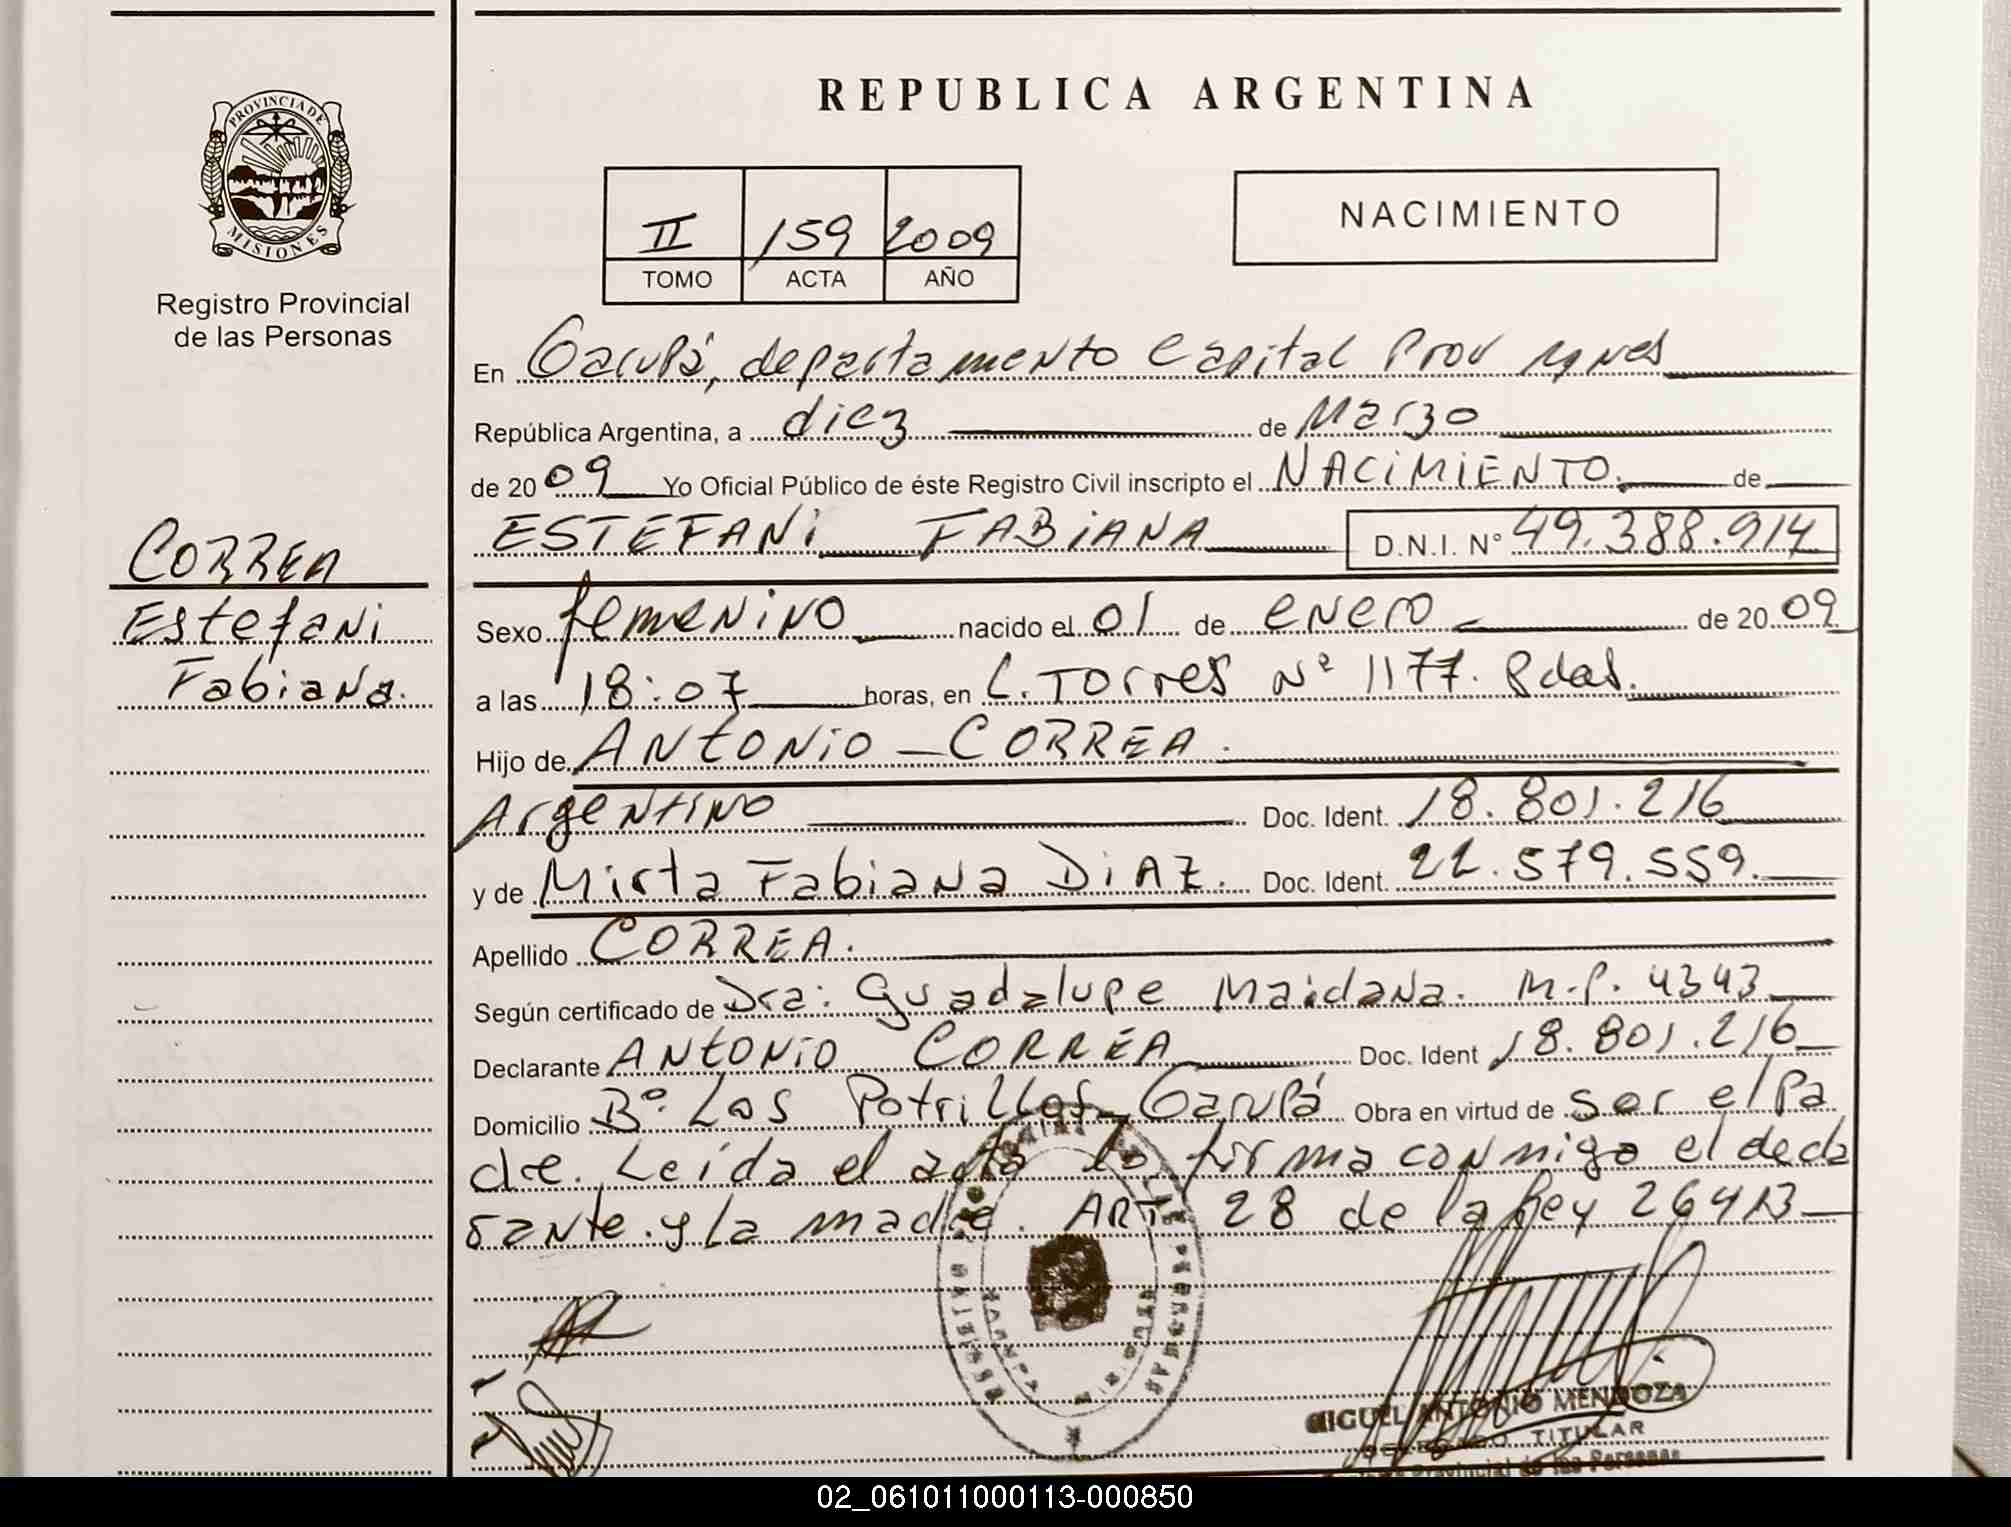 REPUBLICA ARGENTINA
PROVINCIA DE
MISIONES
Registro Provincial
de las Personas
II 159 2009
TOMO ACTA AÑO
NACIMIENTO
En Garupá, departamento Capital Prov Mnes
República Argentina, a diez de Marzo
de 2009 Yo Oficial Público de éste Registro Civil inscripto el NACIMIENTO. de
ESTEFANI FABIANA D.N.I. Nº 49.388.914
CORREA
Estefani
Fabiana.
Sexo femenino nacido el 01 de enero de 2009
a las 18:07 horas, en L. Torres Nº 1177. Pdas.
Hijo de ANTONIO - CORREA.
Argentino Doc. Ident. 18.801.216
y de Mirta Fabiana DIAZ. Doc. Ident. 22.579.559.
Apellido CORREA.
Según certificado de Dra: Guadalupe Maidana. M.P. 4343
Declarante ANTONIO CORREA Doc. Ident 18.801.216
Domicilio Bº. Los Potrillos - Garupá Obra en virtud de ser el Pa
dre. Leída el acta la firma conmigo el decla
rante. y la madre. ART. 28 de la Ley 26413
MIGUEL ANTONIO MENDOZA
DELEGADO TITULAR
Provincial de las Personas
02_061011000113-000850